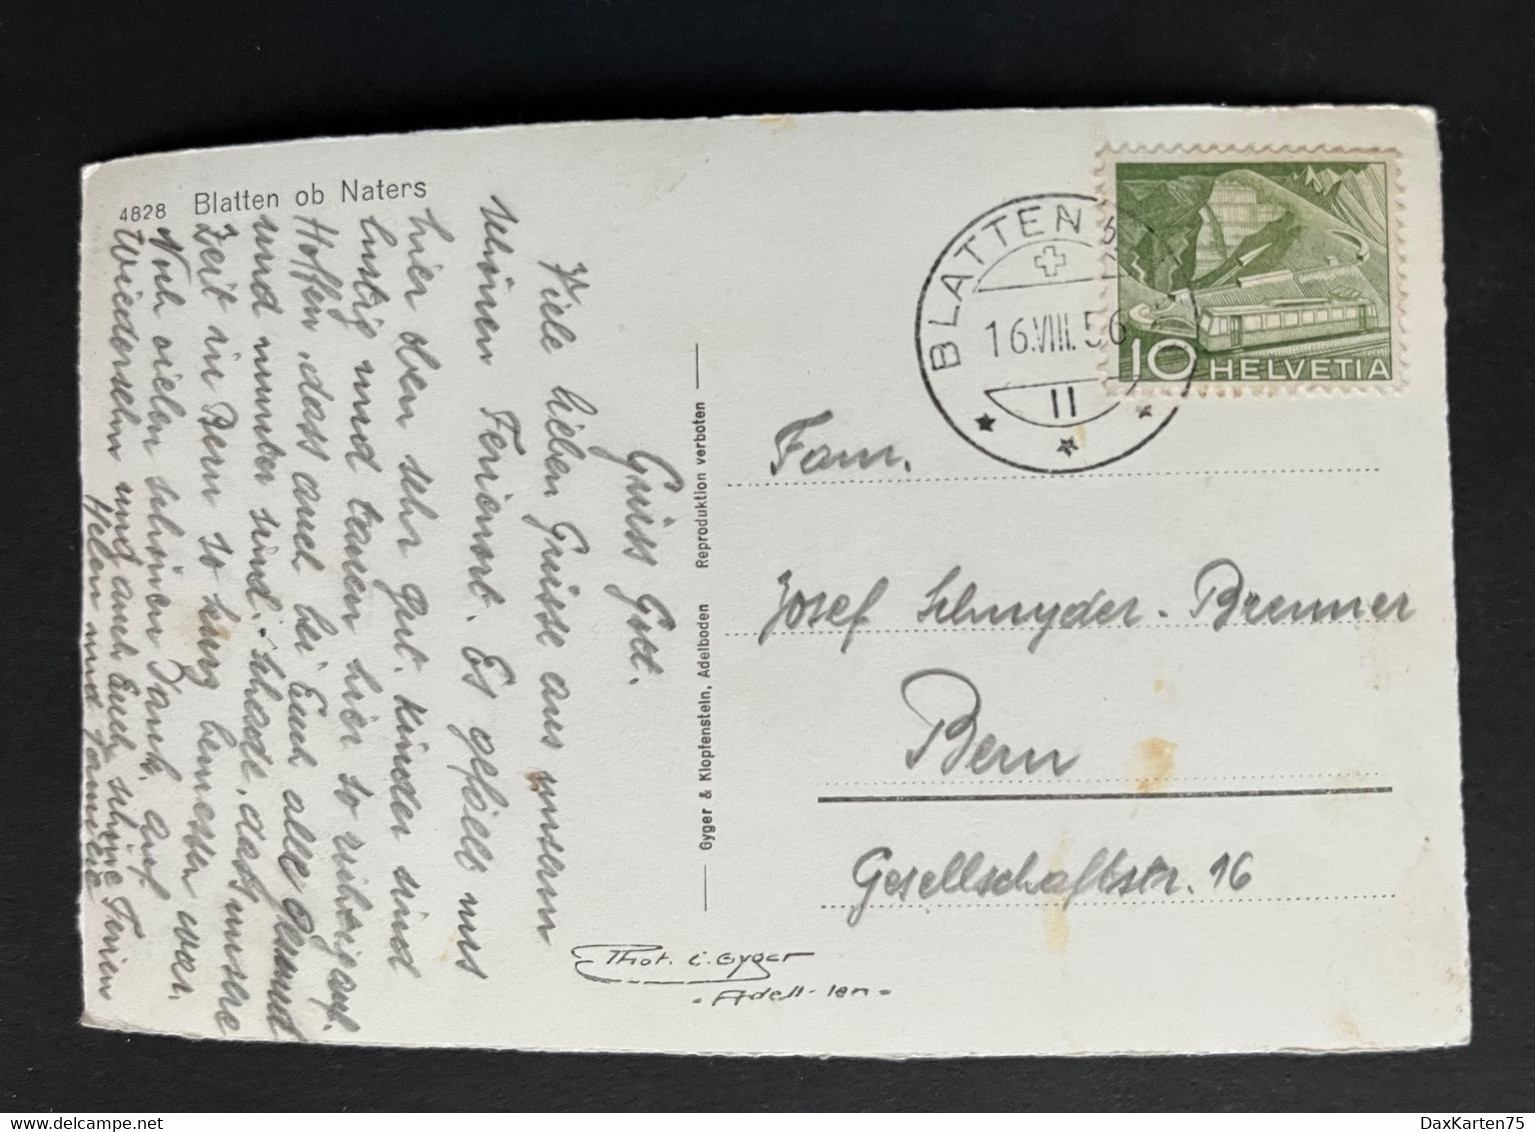 4828 Blatten ob Naters
Grüss Gott.
Viele lieben Grüsse aus unsern
schönen Ferienort. Es gefällt uns
hier oben sehr gut. Kinder sind
lustig und tanen hier so ruhig auf.
Hoffen, dass auch bei Euch alle gesund
und munter sind. - Schade, dass unsere
Zeit in Bern so kurz bemessen war.
Noch vielen schönen Dank. Auf
Wiedersehn und auch Euch schöne Ferien
Helen und Familie
Gyger & Klopfenstein, Adelboden Reproduktion verboten
Phot. E. Gyger
- Adelboden -
BLATTEN b.
16.VIII.56
II
10 HELVETIA
Fam.
Josef Schnyder-Brenner
Bern
Gesellschaftstr. 16
DaxKarten75
delcampe.net